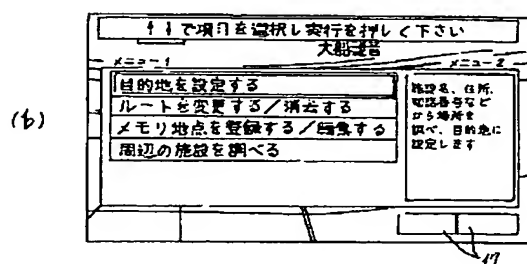 ↑↓で項目を選択し実行を押して下さい
大船
メニュー1
メニュー2
目的地を設定する
ルートを変更する/消去する
メモリ地点を登録する/編集する
周辺の施設を調べる
施設名、住所、
電話番号など
から場所を
調べ、目的地に
設定します
(b)
17